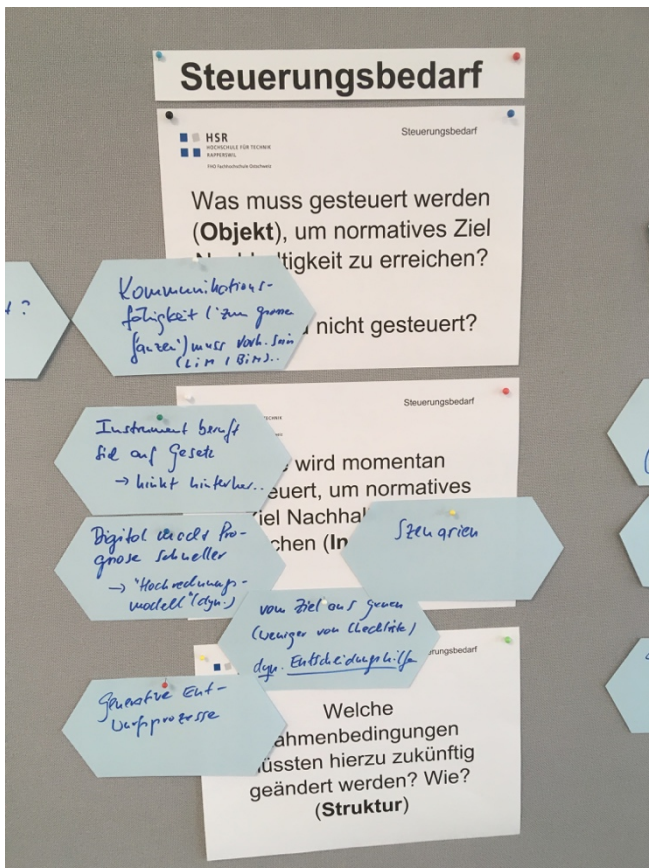 Steuerungsbedarf
HSR
HOCHSCHULE FÜR TECHNIK
RAPPERSWIL
FHO Fachhochschule Ostschweiz
Steuerungsbedarf
Was muss gesteuert werden
(Objekt), um normatives Ziel
tigkeit zu erreichen?
nicht gesteuert?
?
Kommunikations-
fähigkeit (zum grossen
ganzen) muss vorh. sein
(LIM / BIM)..
Steuerungsbedarf
wird momentan
euert, um normatives
iel Nachhal
chen (In
Instrument beruft
sich auf Gesetz
→ hinkt hinterher..
Digital macht Pro-
gnose schneller
→ "Hochrechnungs-
modell" (dyn.)
Szenarien
vom Ziel aus
(weniger von Checkliste)
dyn. Entscheidungshilfe
erungsbedarf
Generative Ent-
wurfsprozesse
Welche
ahmenbedingungen
üssten hierzu zukünftig
geändert werden? Wie?
(Struktur)